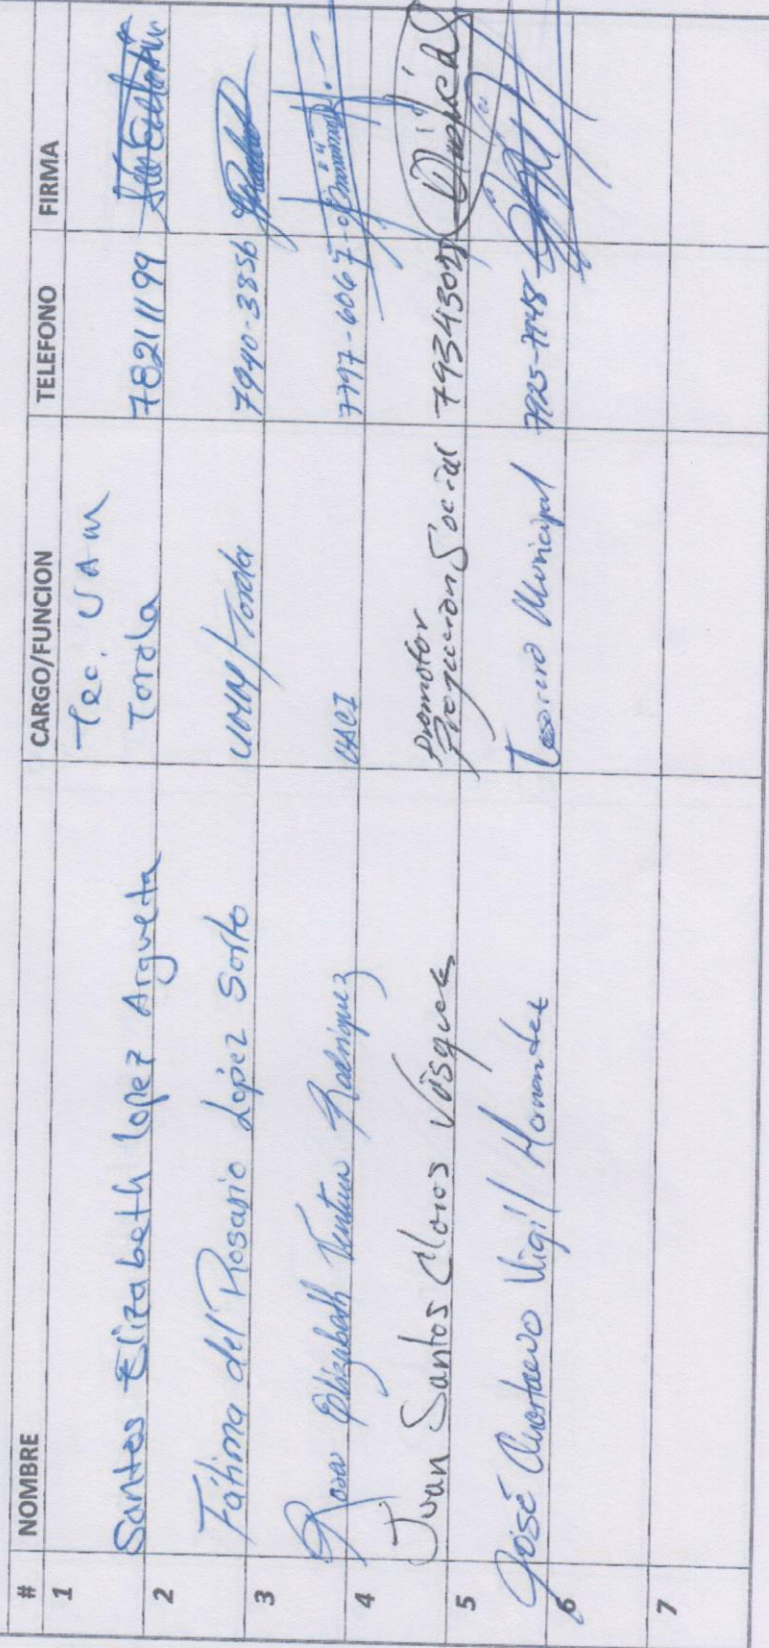 # NOMBRE CARGO/FUNCION TELEFONO FIRMA
1 Santos Elizabeth Lopez Argueta Tec. UAM Torola 78211199
2 Fátima del Rosario López Sorto UMM/Torola 7940-3856
3 Rosa Elizabeth Ventura Rodriguez UACI 7797-6067
4 Juan Santos Claros Vásquez Promotor Proyeccion Social 7934302
5 José Vigil Hernandez Tesorero Municipal 7925-7948
6
7